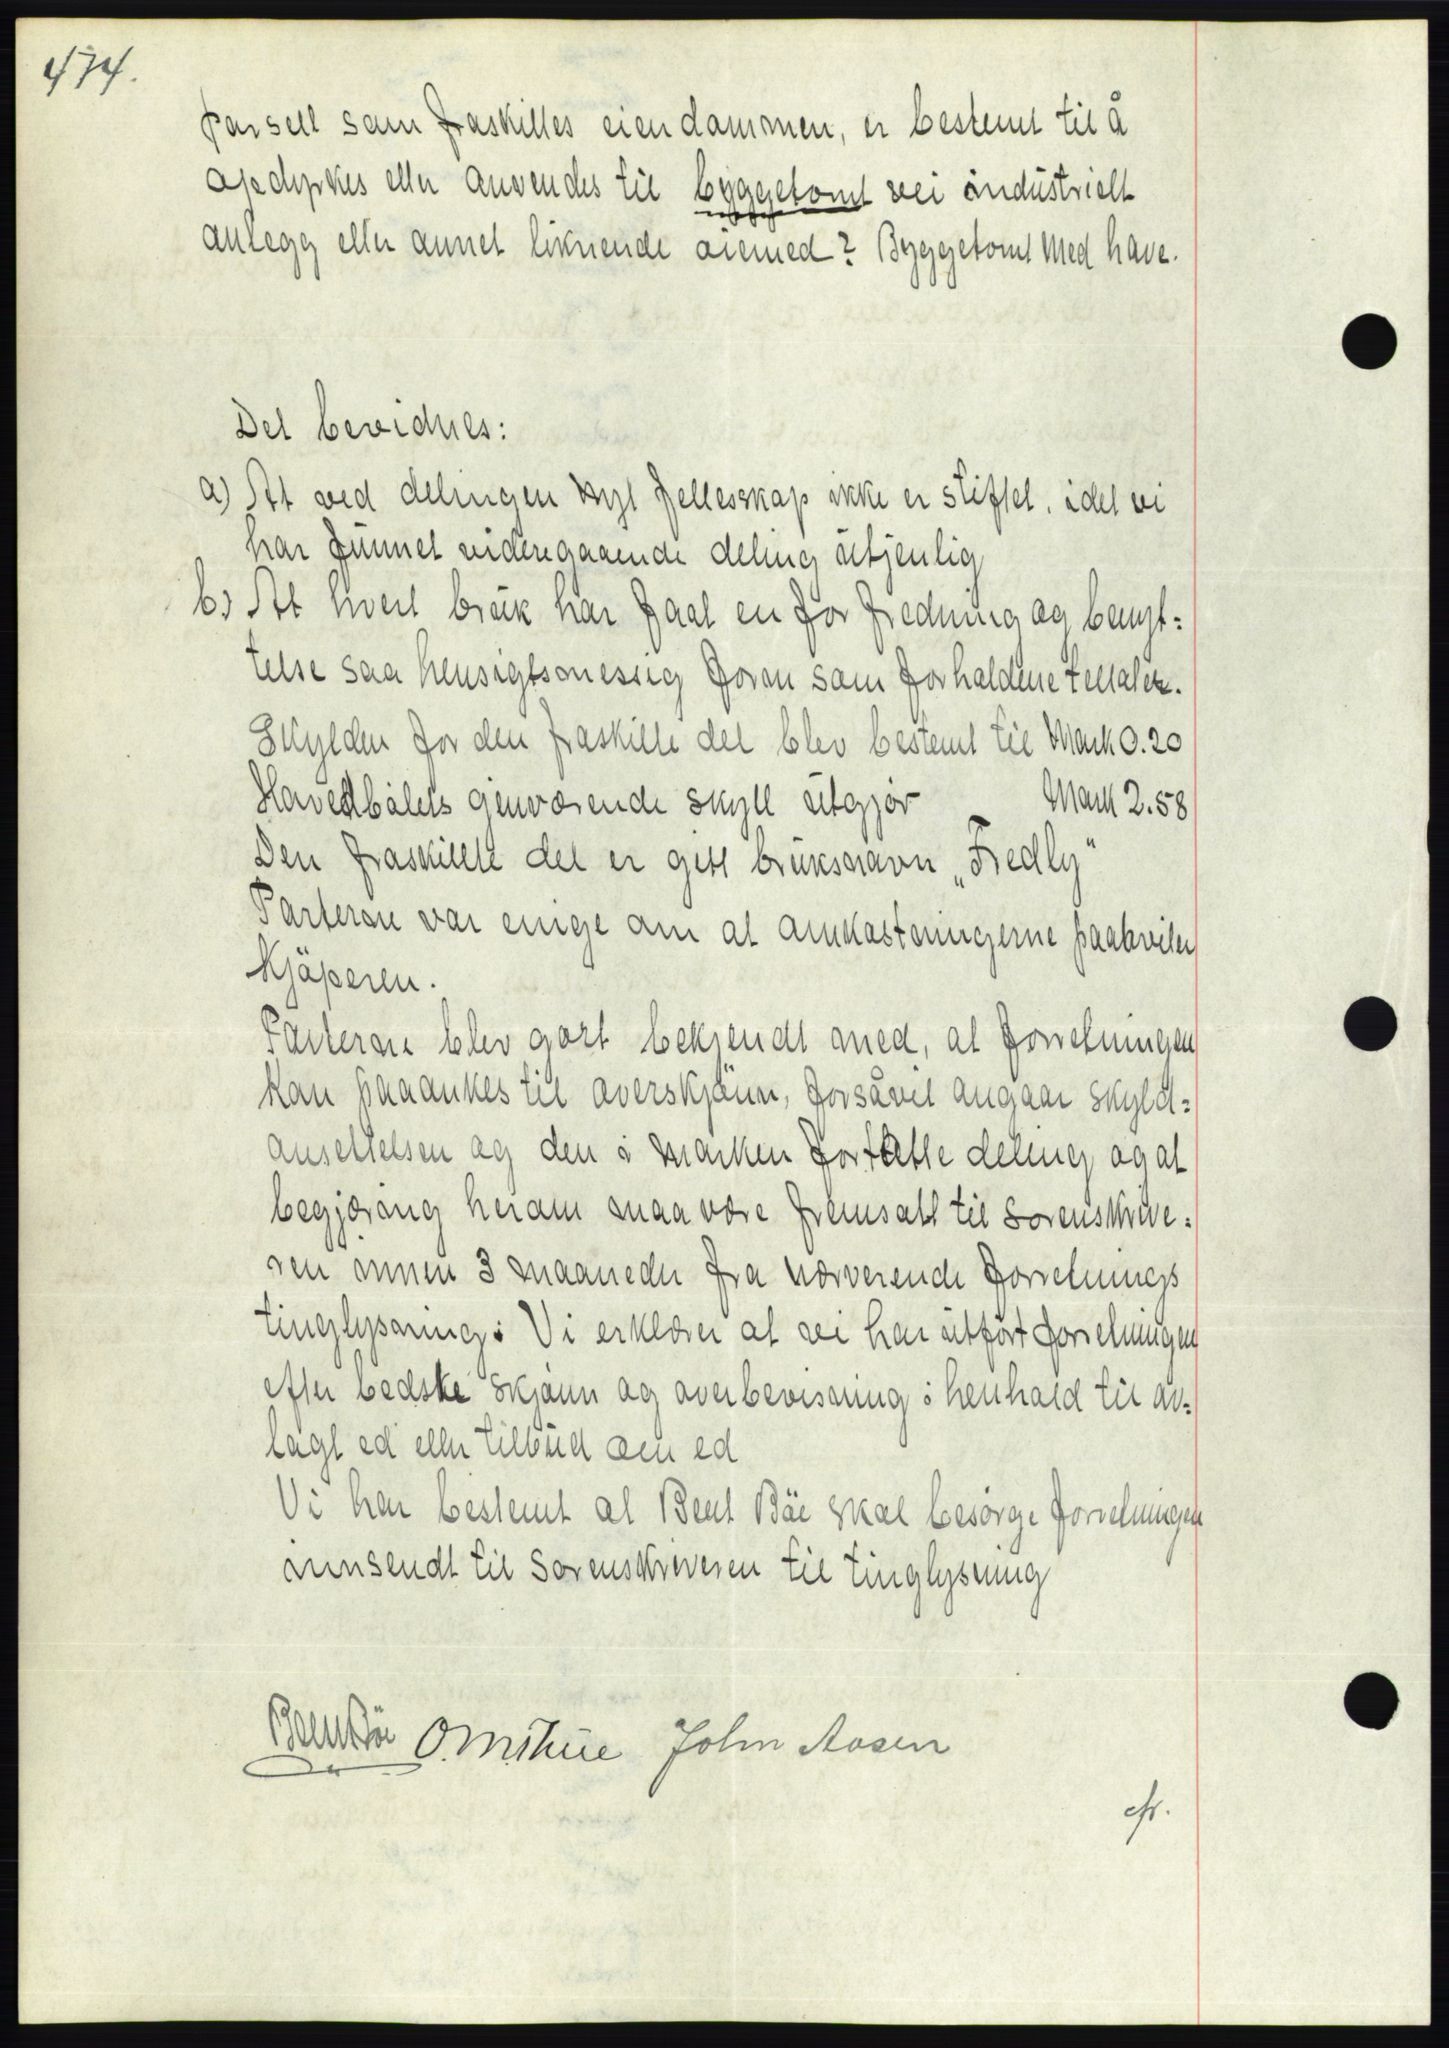 474.
parsell som fraskilles eiendommen, er bestemt til å
opdyrkes eller anvendes til byggetomt vei industrielt
anlegg eller annet liknende øiemed? Byggetomt med have.
Det bevidnes:
a) At ved delingen nyt fellesskap ikke er stiftet, idet vi
har funnet videregaaende deling utjenlig
b) At hvert bruk har faat en for fredning og benyt=
telse saa hensigtsmessig form som forholdene tillater.
Skylden for den fraskilte del blev bestemt til Mark 0.20
Hovedbølets gjenværende skyll utgjør Mark 2.58
Den fraskillte del er gitt bruksnavn „Fredly"
Parterne var enige om at omkostningerne paahviler
Kjøperen.
Parterne blev gort bekjendt med, at forretningen
kan paaankes til overskjønn, forsåvit angaar skyld=
ansettelsen og den i marken fortatte deling, og at
begjæring herom maa være fremsatt til sorenskrive=
ren innen 3 maaneder fra nærverende forretnings
tinglysning: Vi erklærer at vi har utført forretningen
efter bedste skjønn og overbevisning i henhold til av=
lagt ed eller tilbud om ed
Vi har bestemt at Bent Bøe skal besørge forretningen
innsendt til sorenskriveren til tinglysning
Bent Bøe O. M. Thue John Aasen
cfr.